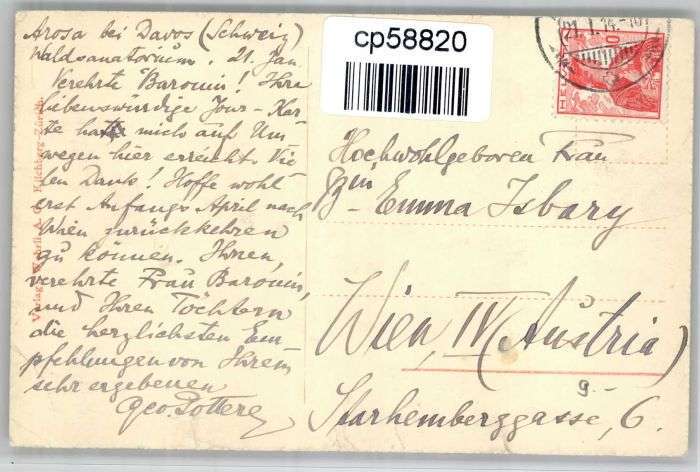 Arosa bei Davos (Schweiz)
Waldsanatorium. 21. Jan.
Verehrte Baronin! Ihre
liebenswürdige Jour-Kar-
te hat mich auf Um-
wegen hier erreicht. Vie-
len Dank! Hoffe wohl
erst Anfangs April nach
Wien zurückkehren
zu können. Ihnen,
verehrte Frau Baronin,
und Ihren Töchtern
die herzlichsten Em-
pfehlungen von Ihrem
sehr ergebenen
Geo. Pottere
cp58820
21. I. 14
HE
Hochwohlgeboren Frau
Bzin Emma Isbary
Wien, IV (Austria)
9.-
Starhemberggasse, 6.
Verlag Wehrli A. G. Kilchberg-Zürich